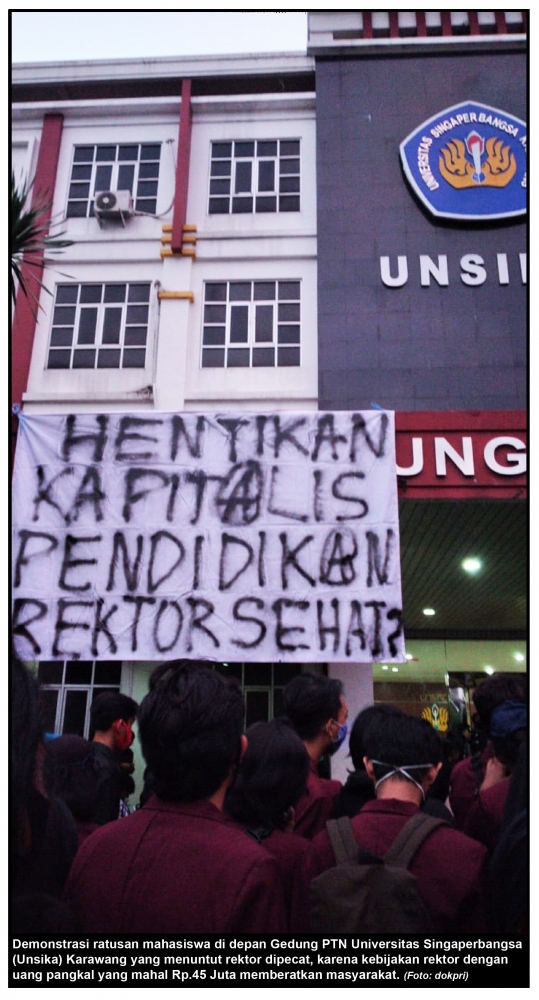 UNIVERSITAS SINGAPERBANGSA
UNSI
UNG
HENTIKAN
KAPITALIS
PENDIDIKAN
REKTOR SEHAT?
Demonstrasi ratusan mahasiswa di depan Gedung PTN Universitas Singaperbangsa
(Unsika) Karawang yang menuntut rektor dipecat, karena kebijakan rektor dengan
uang pangkal yang mahal Rp.45 Juta memberatkan masyarakat. (Foto: dokpri)